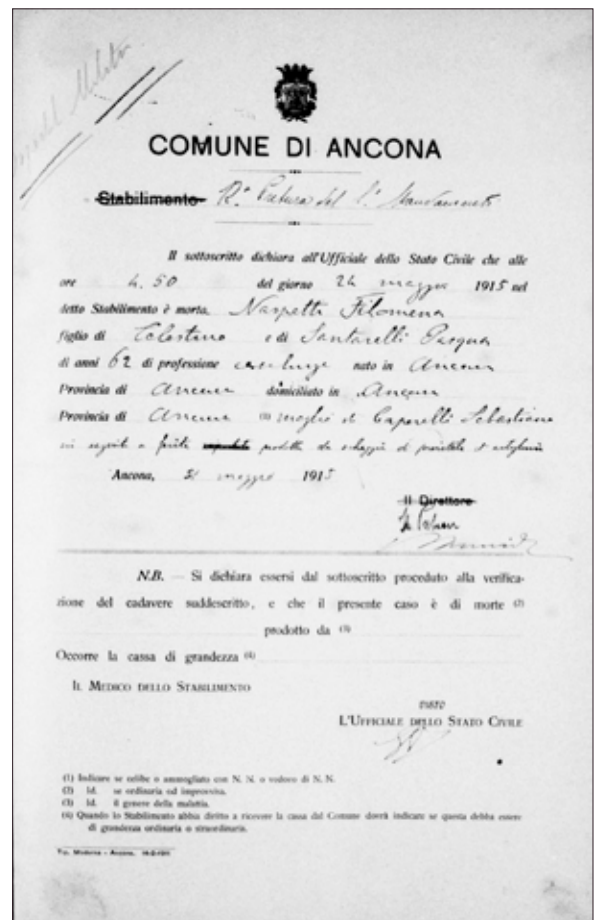 COMUNE DI ANCONA
Stabilimento R.ª Pretura del 1.º Mandamento
Il sottoscritto dichiara all'Ufficiale dello Stato Civile che alle
ore 4.50 del giorno 24 maggio 1915 nel
detto Stabilimento è morta, Naspetti Filomena
figlio di Celestino e di Santarelli Pasqua
di anni 62 di professione casalinga nato in Ancona
Provincia di Ancona domiciliato in Ancona
Provincia di Ancona (1) moglie di Caporelli Sebastiano
in seguito a ferite prodotte da scheggie di proiettile d'artiglieria
Ancona, 31 maggio 1915
Il Direttore
Il Pretore
N.B. — Si dichiara essersi dal sottoscritto proceduto alla verifica-
zione del cadavere suddescritto, e che il presente caso è di morte (2)
prodotto da (3)
Occorre la cassa di grandezza (4)
IL MEDICO DELLO STABILIMENTO
VISTO
L'UFFICIALE DELLO STATO CIVILE
(1) Indicare se celibe o ammogliato con N. N. o vedovo di N. N.
(2) Id. se ordinaria od improvvisa.
(3) Id. il genere della malattia.
(4) Quando lo Stabilimento abbia diritto a ricevere la cassa dal Comune dovrà indicare se questa debba essere
di grandezza ordinaria o straordinaria.
Tip. Moderna - Ancona.